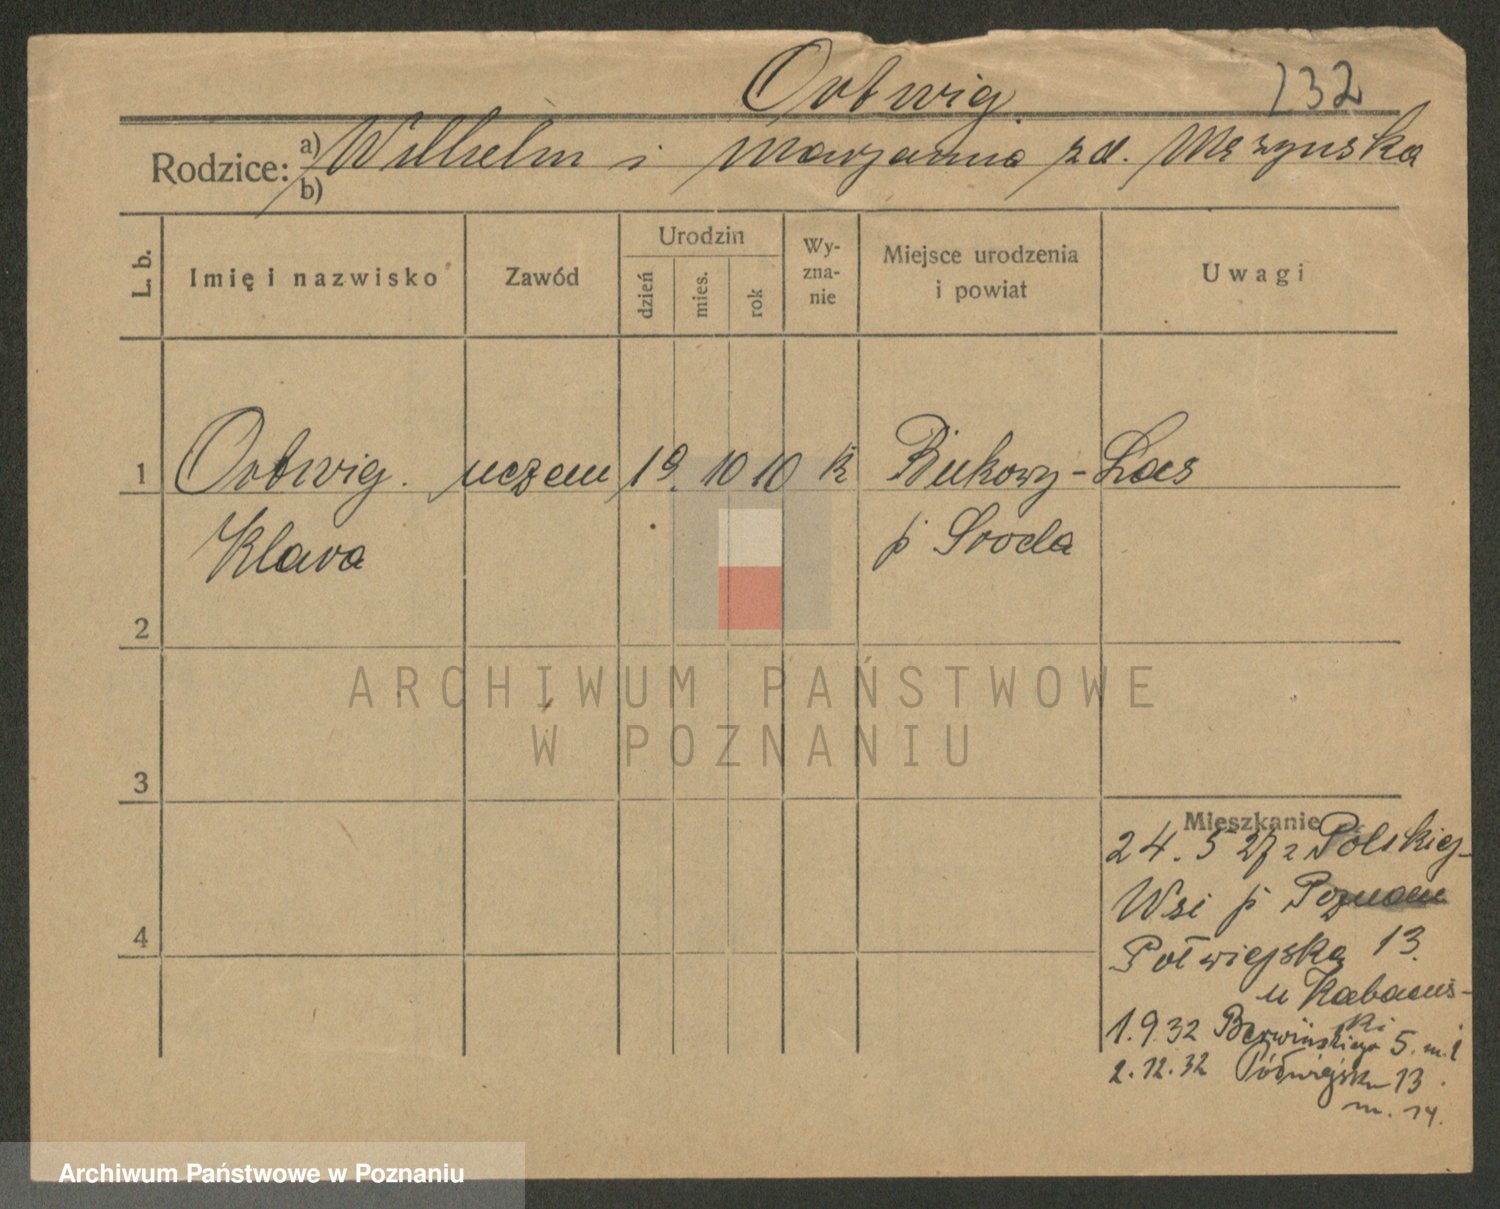 Ortwig
132
Rodzice: a) Wilhelm i Maryanna zd. Mężyńska
b)
L. b.
Imię i nazwisko
Zawód
Urodzin
dzień
mies.
rok
Wy-
zna-
nie
Miejsce urodzenia
i powiat
Uwagi
1 Ortwig. uczen 19. 10 10 k Bukowy-Las
Klara p Sroda
2
3
4
ARCHIWUM PAŃSTWOWE
W POZNANIU
Mieszkanie
24. 5 27 z Polskiej-
Wsi p Poznan
Połwiejska 13.
u Kabacins-
ki
1.9.32 Berwińskiego 5. m. 1
2.12.32 Półwiejska 13.
m. 14.
Archiwum Państwowe w Poznaniu